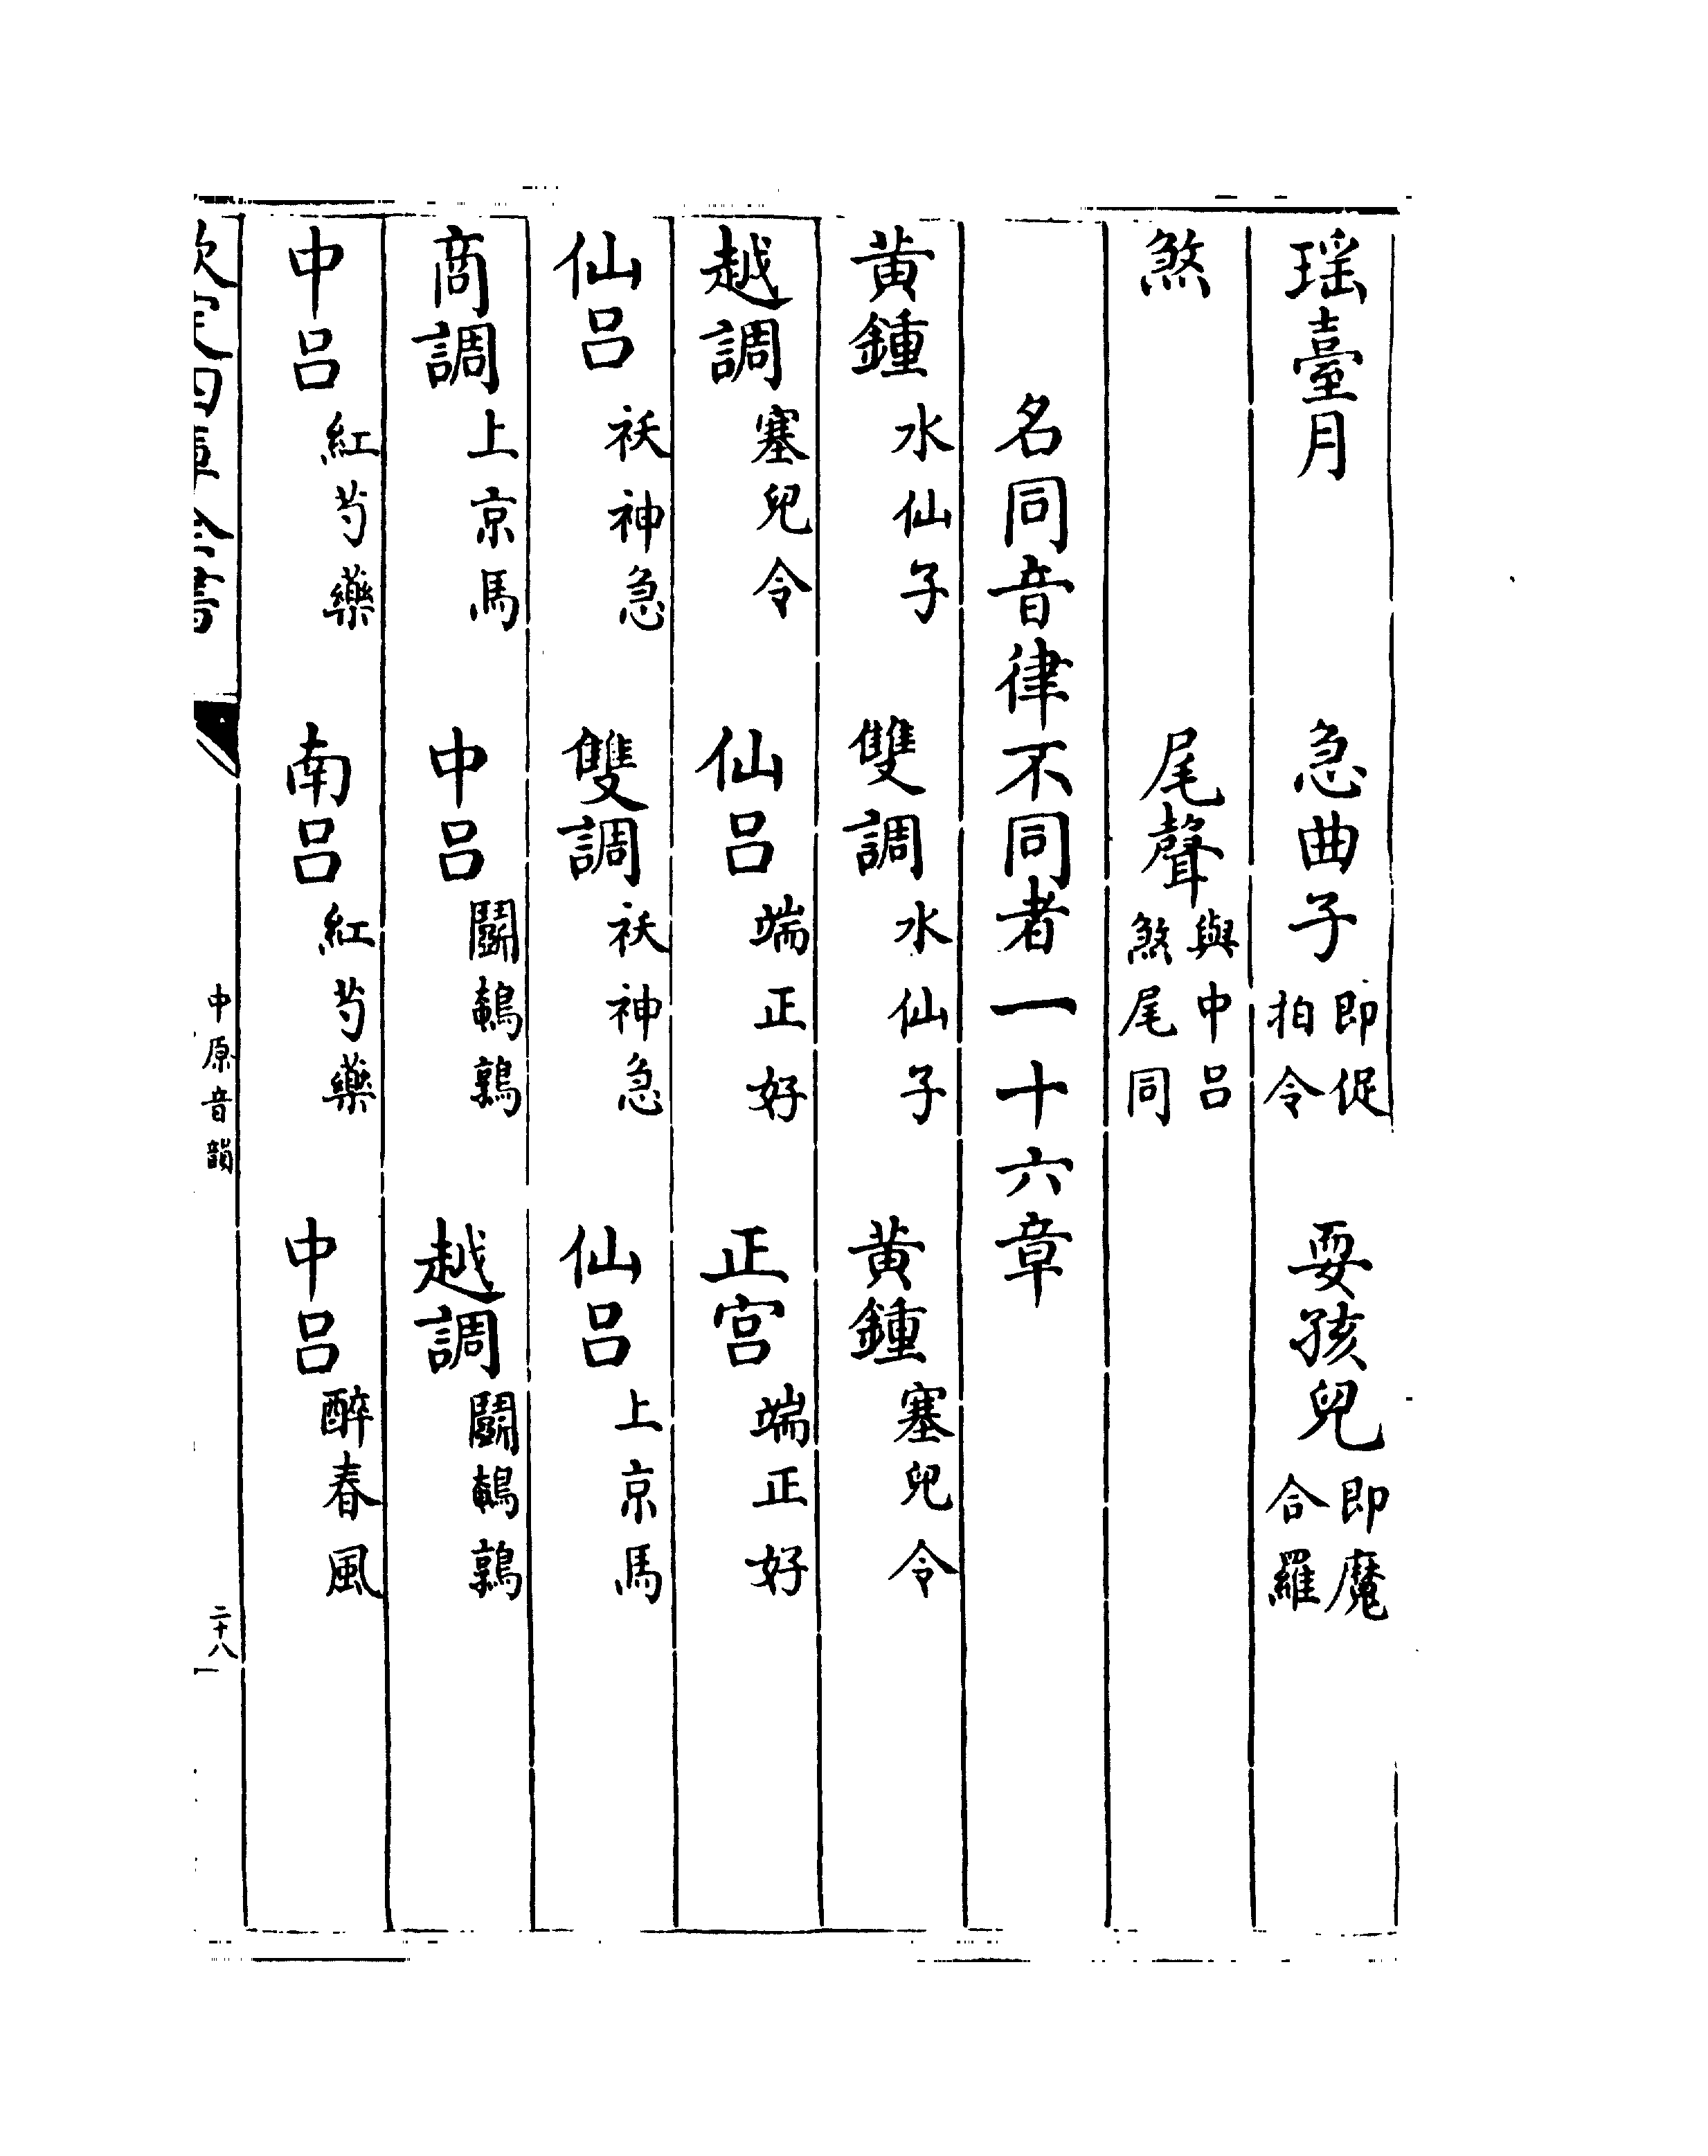 瑶臺月 急曲子即促拍令 耍孩兒即魔合羅
煞 尾聲與中呂煞尾同
名同音律不同者一十六章
黄鍾水仙子 雙調水仙子 黄鍾塞兒令
越調塞兒令 仙呂端正好 正宫端正好
仙呂祅神急 雙調祅神急 仙呂上京馬
商調上京馬 中呂鬭鵪鶉 越調鬭鵪鶉
中呂紅芍藥 南呂紅芍藥 中呂醉春風
欽定四庫全書
中原音韻
二十八